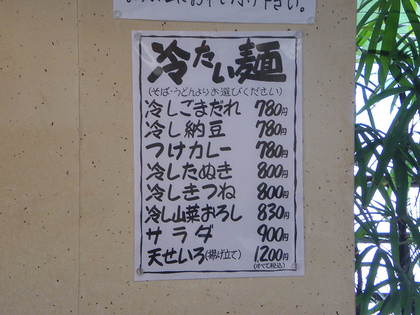 冷たい麺
(そば・うどんよりお選びください)
冷しごまだれ 780円
冷し納豆 780円
つけカレー 780円
冷したぬき 800円
冷しきつね 800円
冷し山菜おろし 830円
サラダ 900円
天せいろ(揚げ立て) 1,200円
(すべて税込)